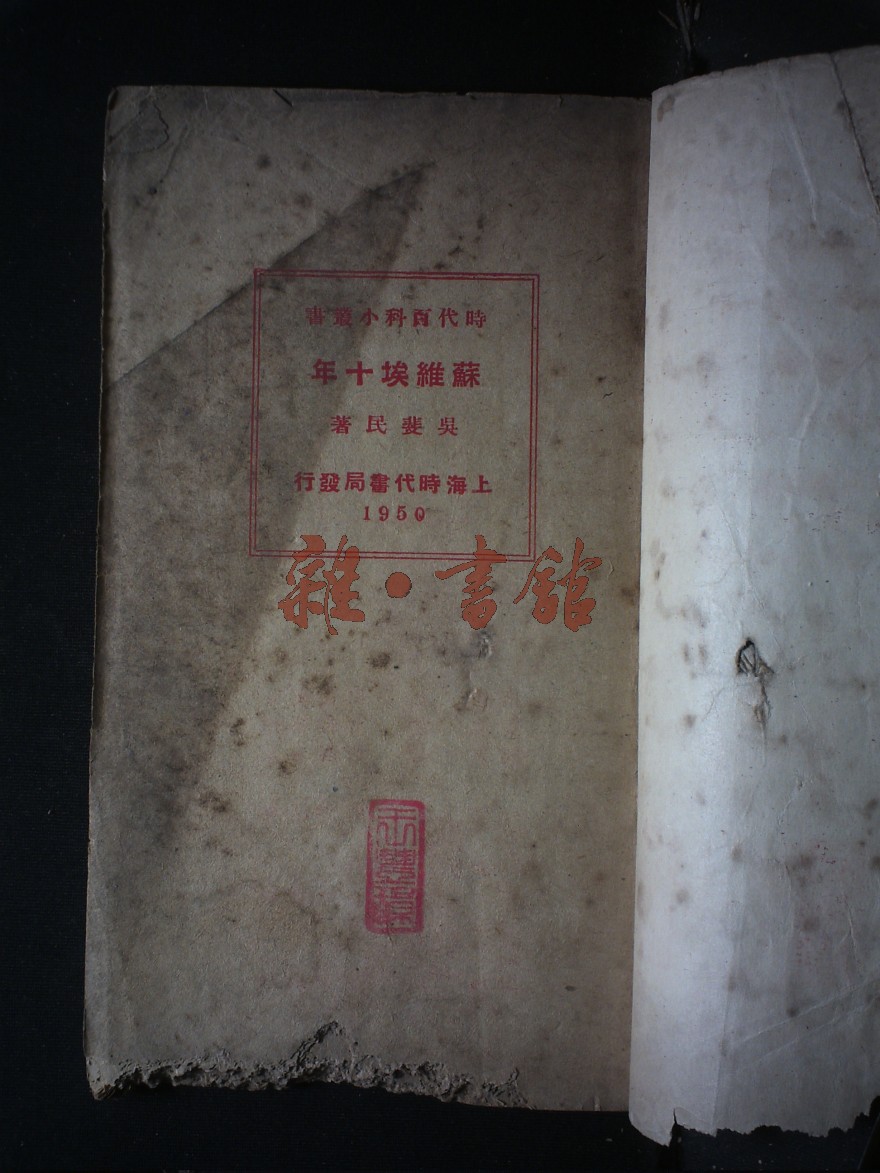 時代百科小叢書
蘇維埃十年
吳斐民著
上海時代書局發行
1950
雜·書館